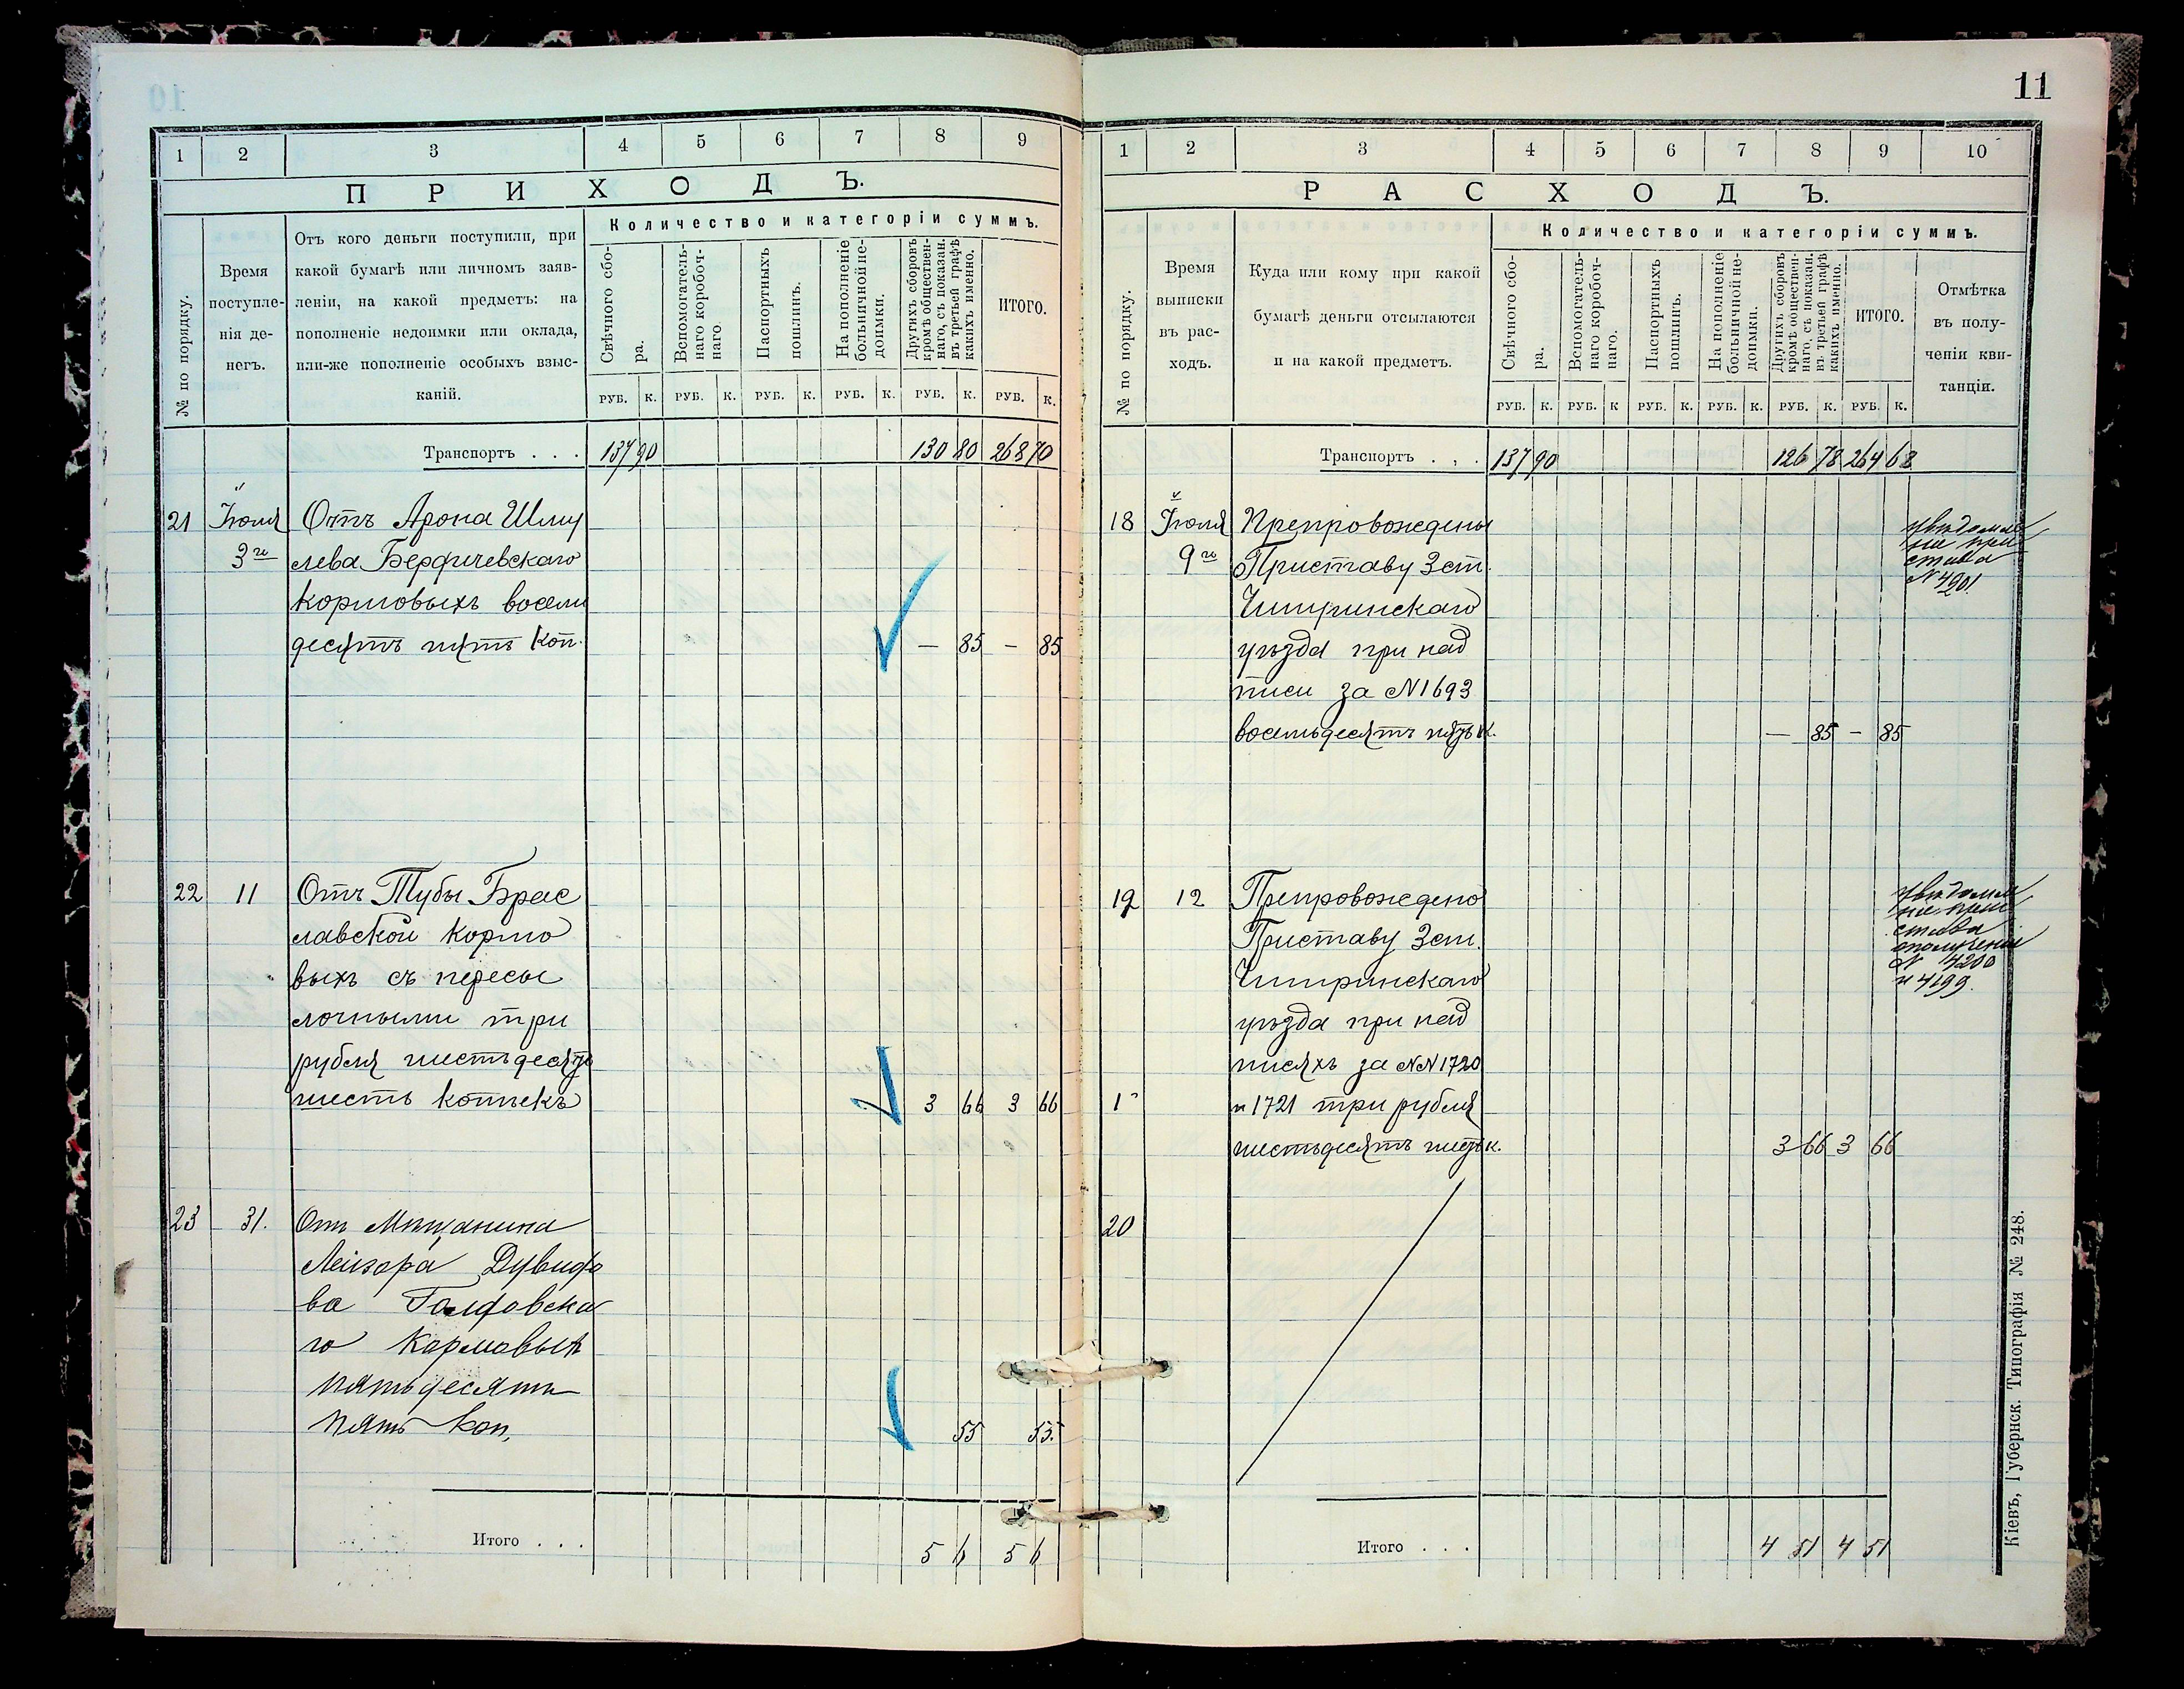 11
1 2 3 4 5 6 7 8 9
ПРИХОДЪ.
№ по порядку.
Время
поступле-
нія де-
негъ.
Отъ кого деньги поступили, при
какой бумагѣ или личномъ заяв-
леніи, на какой предметъ: на
пополненіе недоимки или оклада,
или-же пополненіе особыхъ взыс-
каній.
Количество и категоріи суммъ.
Свѣчного сбо-
ра.
Вспомогатель-
наго коробоч-
наго.
Паспортныхъ
пошлинъ.
На пополненіе
больничной не-
доимки.
Другихъ сборовъ
кромѣ обществен-
наго, съ показан.
въ третьей графѣ
какихъ именно.
ИТОГО.
РУБ. К. РУБ. К. РУБ. К. РУБ. К. РУБ. К. РУБ. К.
Транспортъ . . . 137 90 130 80 268 70
21 Іюля Отъ Арона Шму
3го лева Бердичевскаго
кормовыхъ восемь
десятъ пять коп. — 85 — 85
22 11 Отъ Тубы Брас
лавской кормо
выхъ съ пересы
лочными три
рубля шестьдесятъ
шесть копѣекъ 3 66 3 66
23 31. Отъ Мѣщанина
Лейзора Дувидо
ва
го Кормовыхъ
пятьдесятъ
пять коп. 55 55.
Итого . . . 5 6 5 6
1 2 3 4 5 6 7 8 9 10
РАСХОДЪ.
№ по порядку.
Время
выписки
въ рас-
ходъ.
Куда или кому при какой
бумагѣ деньги отсылаются
и на какой предметъ.
Количество и категоріи суммъ.
Свѣчного сбо-
ра.
Вспомогатель-
наго коробоч-
наго.
Паспортныхъ
пошлинъ.
На пополненіе
больничной не-
доимки.
Другихъ сборовъ
кромѣ обществен-
наго, съ показан.
въ третьей графѣ
какихъ именно.
ИТОГО.
Отмѣтка
въ полу-
ченіи кви-
танціи.
РУБ. К. РУБ. К РУБ. К. РУБ. К. РУБ. К. РУБ. К.
Транспортъ . . . 137 90 126 78 264 68
18 Іюля Препровождены
9го Приставу 3 ст.
Чигиринскаго
уѣзда при над
писи за №1693
восемьдесятъ пять к. — 85 — 85
увѣдомле
ніе при
става
№4201
19 12 Препровождено
Приставу 3 ст.
Чигиринскаго
уѣзда при над
писяхъ за №№1720
и 1721 три рубля
шестьдесятъ шесть к. 3 66 3 66
увѣдомле
ніе при
става
о полученіи
№ 4200
и 4199.
20
Итого . . . 4 51 4 51
Кіевъ, Губернск. Типографія № 248.